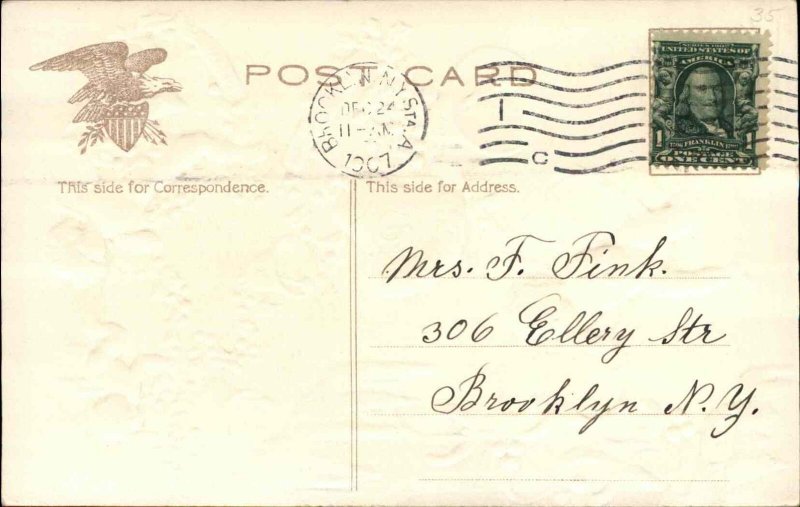 35
POST CARD
BROOKLYN, N.Y. STA. A
DEC 24
11-AM
1907
1
C
SERIES 1902
UNITED STATES OF
AMERICA
1706 FRANKLIN 1790
POSTAGE
1 ONE CENT 1
This side for Correspondence.
This side for Address.
Mrs. F. Fink.
306 Ellery Str
Brooklyn N.Y.